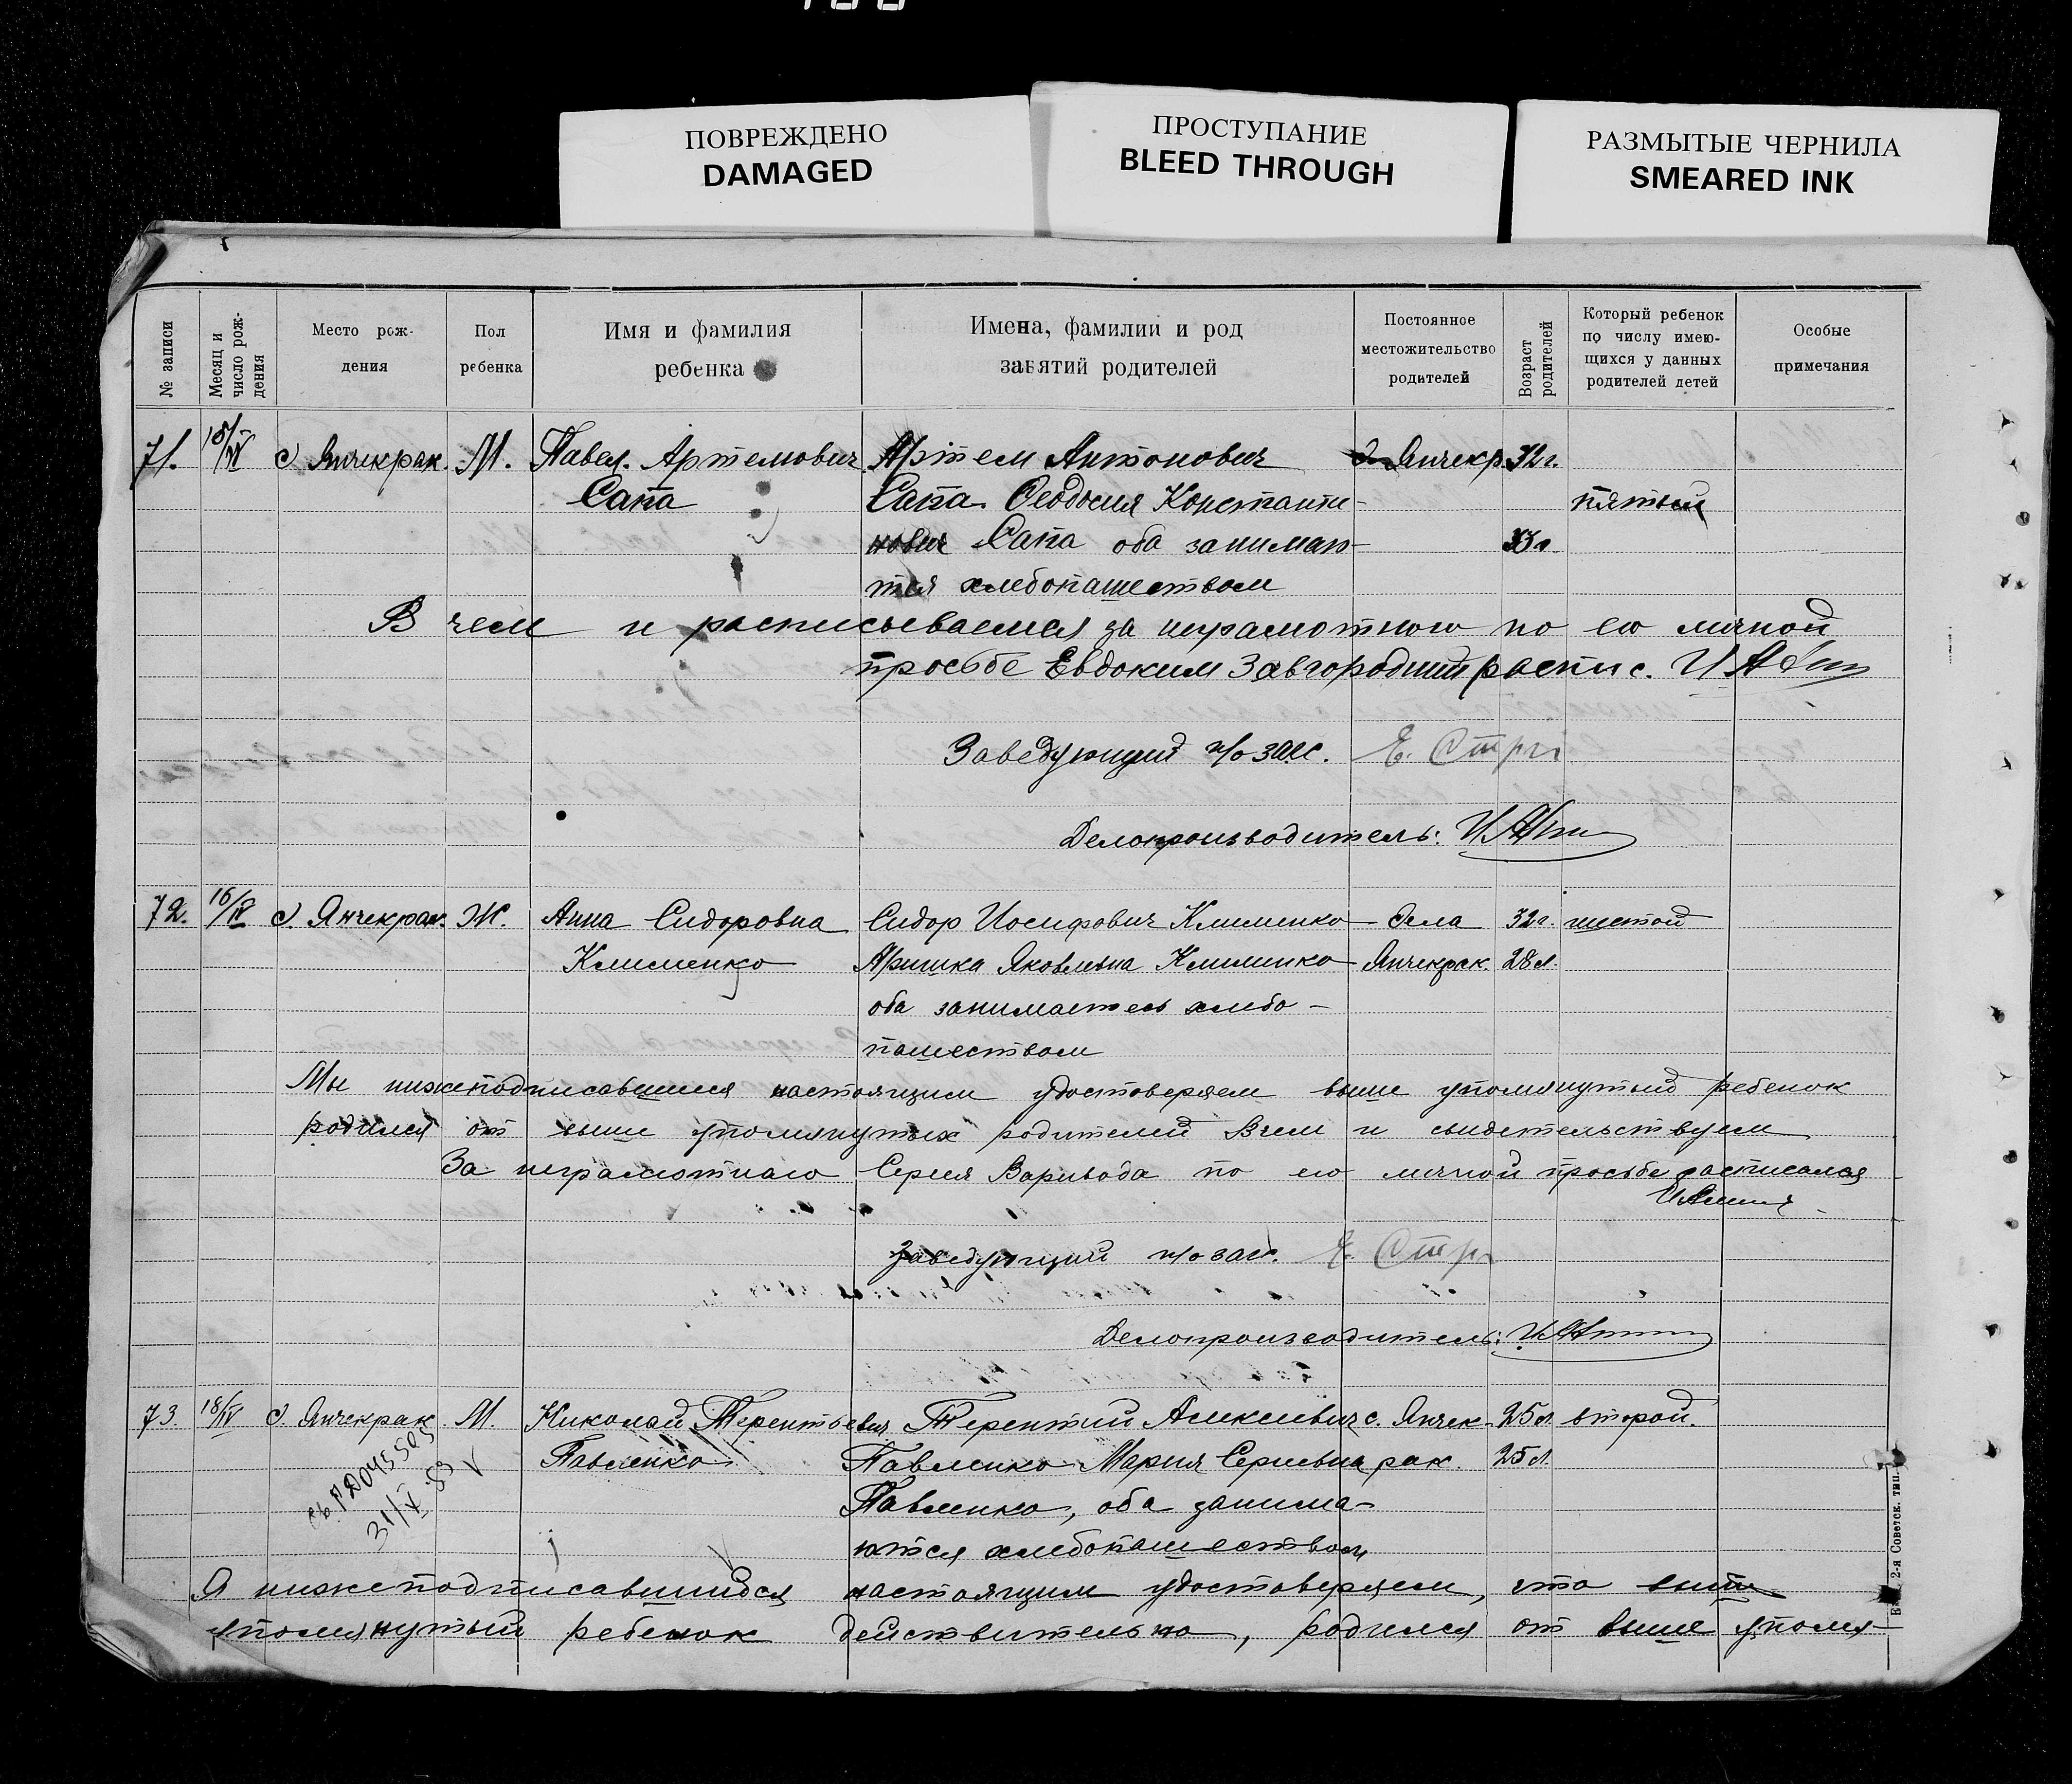 ПОВРЕЖДЕНО
DAMAGED
ПРОСТУПАНИЕ
BLEED THROUGH
РАЗМЫТЫЕ ЧЕРНИЛА
SMEARED INK
№ записи
Месяц и
число рож-
дения
Место рож-
дения
Пол
ребенка
Имя и фамилия
ребенка
Имена, фамилии и род
занятий родителей
Постоянное
местожительство
родителей
Возраст
родителей
Который ребенок
по числу имею-
щихся у данных
родителей детей
Особые
примечания
71. 15/IV с Янчекрак. М. Павел. Артемович Артем Антонович с Янчекр. 32 г.
Сапа Сапа. Феодосия Константи- пятый
нович Сапа оба занимаю-
тся хлебопашеством
В чем и расписываемся за неграмотного по его личной
просьбе Евдоким Завгородний распис.
Заведующий п/о загс. Е.
Делопроизводитель:
72. 16/IV с. Янчекрак. Ж. Анна Сидоровна Сидор Иосифович Клименко села 32 г. шестой
Клименко Аришка Яковлевна Клименко Янчекрак. 28 л.
оба занимаетесь хлебо-
пашеством
Мы нижеподписавшиеся настоящим удостоверяем выше упомянутый ребенок
родился от выше упомянутых родителей В чем и свидетельствуем
За неграмотного Сергея Варивода по его личной просьбе расписался
Заведующий п/о загс. Е.
Делопроизводитель:
73. 18/IV с. Янчекрак М. Николай Терентьевич Терентий Алексеевич с. Янчек- 25 л. второй.
Павленко Павленко Мария Сергеевна рак. 25 л.
Павленко, оба занима-
ются хлебопашеством
31/V 83
Я нижеподписавшийся настоящим удостоверяем, что выше
упомянутый ребенок действительно, родился от выше упомя-
2-я Советск. тип.